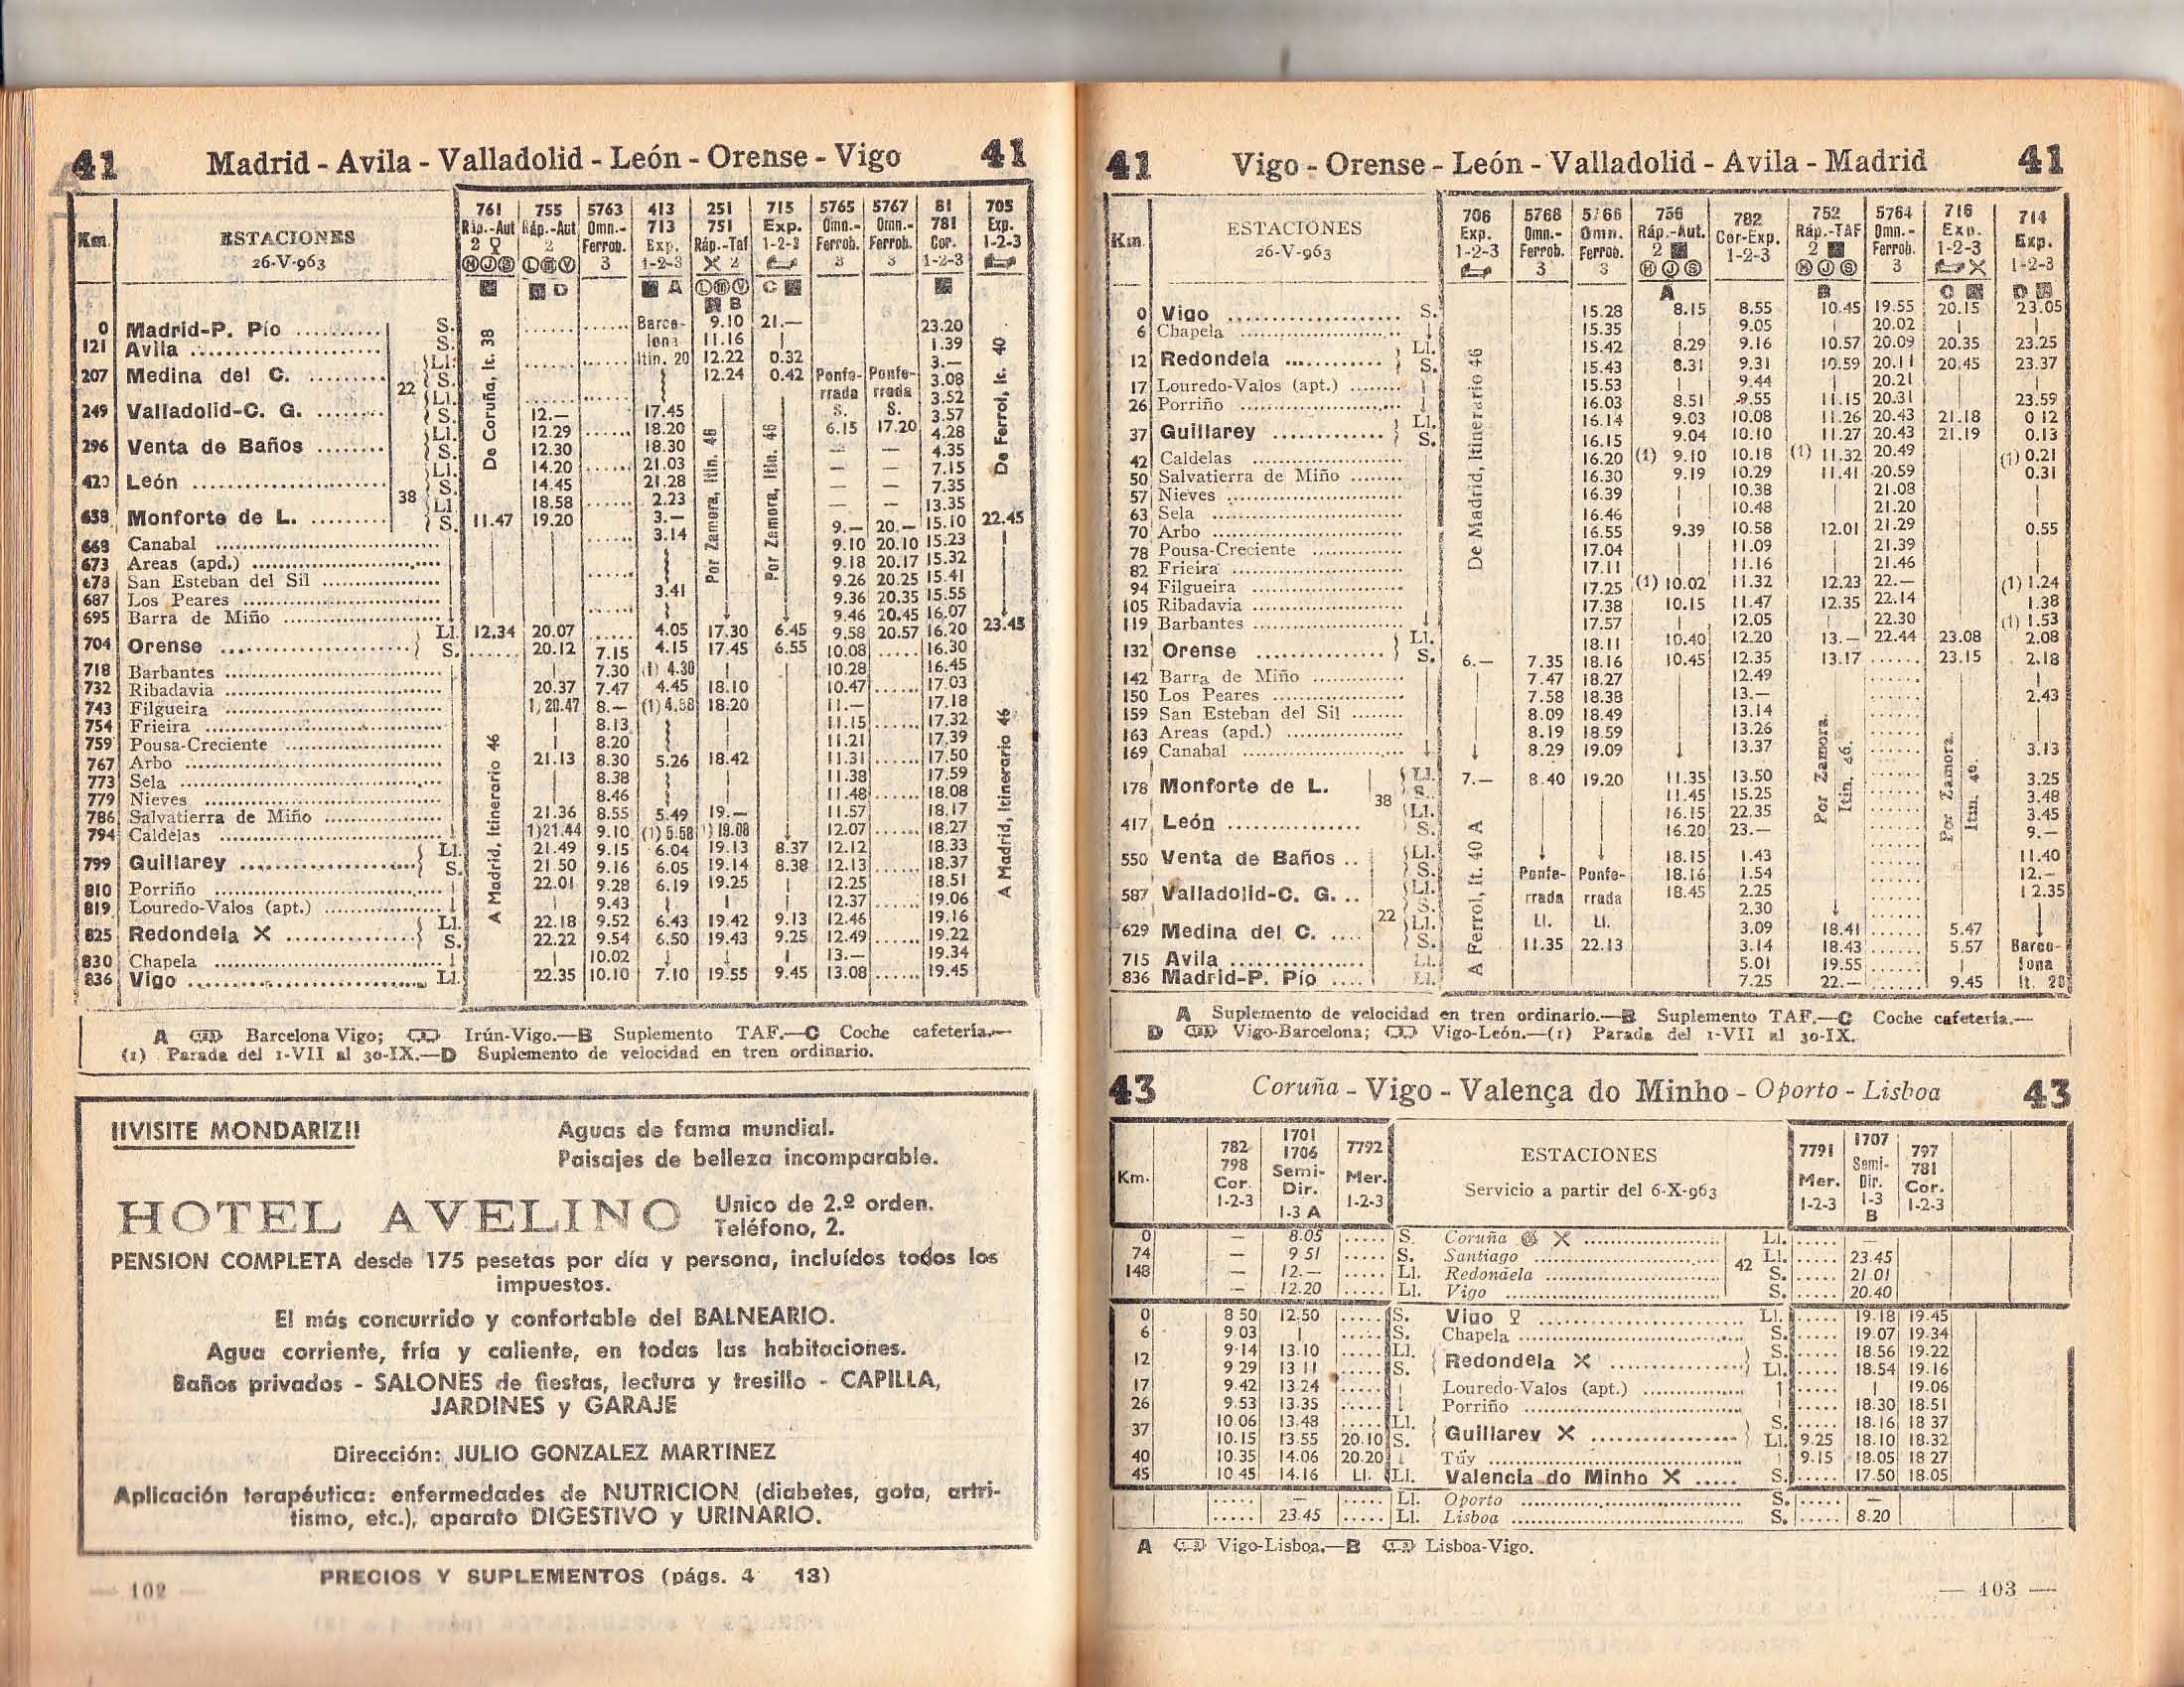 41 Madrid - Avila - Valladolid - León - Orense - Vigo 41
Km. ESTACIONES 26-V-963
761 755 5763 413 251 715 5765 5767 81 705
Ráp.-Aut Ráp.-Aut Omn.- 713 751 Exp. Omn.- Omn.- 781 Exp.
2 2 Ferrob. Exp. Ráp.-Taf 1-2-3 Ferrob. Ferrob. Cor. 1-2-3
3 1-2-3 2 3 3 1-2-3
D A B C
De Coruña, It. 38
A Madrid, Itinerario 46
Por Zamora, Itin. 46
Por Zamora, Itin. 46
De Ferrol, It. 40
A Madrid, Itinerario 46
Barcelona Itin. 20
Ponferrada S. Ponferrada S.
0 Madrid-P. Pío S. 9.10 21.— 23.20
121 Avila S. 11.16 1.39
207 Medina del C. Ll. 12.22 0.32 3.—
S. 12.24 0.42 3.08
22
249 Valladolid-C. G. Ll. 3.52
S. 12.— 17.45 6.15 17.20 3.57
296 Venta de Baños Ll. 12.29 18.20 4.28
S. 12.30 18.30 4.35
León Ll. 14.20 21.03 7.15
S. 14.45 21.28 7.35
38
638 Monforte de L. Ll. 18.58 2.23 13.35
S. 11.47 19.20 3.— 9.— 20.— 15.10 22.45
Canabal 3.14 9.10 20.10 15.23
673 Areas (apd.) 9.18 20.17 15.32
678 San Esteban del Sil 9.26 20.25 15.41
687 Los Peares 3.41 9.36 20.35 15.55
695 Barra de Miño 9.46 20.45 16.07
704 Orense Ll. 12.34 20.07 4.05 17.30 6.45 9.58 20.57 16.20 23.45
S. 20.12 7.15 4.15 17.45 6.55 10.08 16.30
718 Barbantes 7.30 (1) 4.30 10.28 16.45
732 Ribadavia 20.37 7.47 4.45 18.10 10.47 17.03
743 Filgueira 20.47 8.— (1)4.58 18.20 11.— 17.18
754 Frieira 8.13 11.15 17.32
759 Pousa-Creciente 8.20 11.21 17.39
767 Arbo 21.13 8.30 5.26 18.42 11.31 17.50
773 Sela 8.38 11.38 17.59
779 Nieves 8.46 11.48 18.08
786 Salvatierra de Miño 21.36 8.55 5.49 19.— 11.57 18.17
794 Caldelas 1)21.44 9.10 (1) 5.58 1) 19.08 12.07 18.27
799 Guillarey Ll. 21.49 9.15 6.04 19.13 8.37 12.12 18.33
S. 21.50 9.16 6.05 19.14 8.38 12.13 18.37
810 Porriño 22.01 9.28 6.19 19.25 12.25 18.51
819 Louredo-Valos (apt.) 9.43 12.37 19.06
825 Redondela Ll. 22.18 9.52 6.43 19.42 9.13 12.46 19.16
S. 22.22 9.54 6.50 19.43 9.25 12.49 19.22
830 Chapela 10.02 13.— 19.34
836 Vigo Ll. 22.35 10.10 7.10 19.55 9.45 13.08 19.45
A Barcelona Vigo; Irún-Vigo.—B Suplemento TAF.—C Coche cafetería.—
(1) Parada del 1-VII al 30-IX.—D Suplemento de velocidad en tren ordinario.
¡¡VISITE MONDARIZ!! Aguas de fama mundial.
Paisajes de belleza incomparable.
HOTEL AVELINO Unico de 2.ª orden.
Teléfono, 2.
PENSION COMPLETA desde 175 pesetas por día y persona, incluídos todos los
impuestos.
El más concurrido y confortable del BALNEARIO.
Agua corriente, fría y caliente, en todas las habitaciones.
Baños privados - SALONES de fiestas, lectura y tresillo - CAPILLA,
JARDINES y GARAJE
Dirección: JULIO GONZALEZ MARTINEZ
Aplicación terapéutica: enfermedades de NUTRICION (diabetes, gota, artri-
tismo, etc.), aparato DIGESTIVO y URINARIO.
— 102 — PRECIOS Y SUPLEMENTOS (págs. 4 13)
41 Vigo - Orense - León - Valladolid - Avila - Madrid 41
Km. ESTACIONES 26-V-963
706 5768 5766 756 782 752 5764 716 714
Exp. Omn.- Omn. Ráp.-Aut. Cor-Exp. Ráp.-TAF Omn.- Exp. Exp.
1-2-3 Ferrob. Ferrob. 2 1-2-3 2 Ferrob. 1-2-3 1-2-3
3 3 3
A B C D
De Madrid, Itinerario 46
A Ferrol, It. 40 A
Por Zamora. Itin. 46.
Por Zamora. Itin. 46.
0 Vigo S. 15.28 8.15 8.55 10.45 19.55 20.15 23.05
6 Chapela 15.35 9.05 20.02
12 Redondela Ll. 15.42 8.29 9.16 10.57 20.09 20.35 23.25
S. 15.43 8.31 9.31 10.59 20.11 20.45 23.37
17 Louredo-Valos (apt.) 15.53 9.44 20.21
26 Porriño 16.03 8.51 9.55 11.15 20.31 23.59
37 Guillarey Ll. 16.14 9.03 10.08 11.26 20.43 21.18 0 12
S. 16.15 9.04 10.10 11.27 20.43 21.19 0.13
42 Caldelas 16.20 (1) 9.10 10.18 (1) 11.32 20.49 (1) 0.21
50 Salvatierra de Miño 16.30 9.19 10.29 11.41 20.59 0.31
57 Nieves 16.39 10.38 21.08
63 Sela 16.46 10.48 21.20
70 Arbo 16.55 9.39 10.58 12.01 21.29 0.55
78 Pousa-Creciente 17.04 11.09 21.39
82 Frieira 17.11 11.16 21.46
94 Filgueira 17.25 (1) 10.02 11.32 12.23 22.— (1) 1.24
105 Ribadavia 17.38 10.15 11.47 12.35 22.14 1.38
119 Barbantes 17.57 12.05 22.30 (1) 1.53
132 Orense Ll. 18.11 10.40 12.20 13.— 22.44 23.08 2.08
S. 6.— 7.35 18.16 10.45 12.35 13.17 23.15 2.18
142 Barra de Miño 7.47 18.27 12.49
150 Los Peares 7.58 18.38 13.— 2.43
159 San Esteban del Sil 8.09 18.49 13.14
163 Areas (apd.) 8.19 18.59 13.26
169 Canabal 8.29 19.09 13.37 3.13
178 Monforte de L. Ll. 7.— 8.40 19.20 11.35 13.50 3.25
S. 11.45 15.25 3.48
38
417 León Ll. 16.15 22.35 3.45
S. 16.20 23.— 9.—
550 Venta de Baños Ll. 18.15 1.43 11.40
S. Ponferrada Ll. Ponferrada Ll. 18.16 1.54 12.—
587 Valladolid-C. G. Ll. 18.45 2.25 12.35
S. 2.30
22
629 Medina del C. Ll. 3.09 18.41 5.47
S. 11.35 22.13 3.14 18.43 5.57 Barcelona It. 20
715 Avila Ll. 5.01 19.55
836 Madrid-P. Pío Ll. 7.25 22.— 9.45
A Suplemento de velocidad en tren ordinario.—B Suplemento TAF.—C Coche cafetería.—
D Vigo-Barcelona; Vigo-León.—(1) Parada del 1-VII al 30-IX.
43 Coruña - Vigo - Valença do Minho - Oporto - Lisboa 43
Km. 782 798 Cor. 1-2-3 1701 1706 Semi-Dir. 1-3 A 7792 Mer. 1-2-3 ESTACIONES Servicio a partir del 6-X-963 7791 Mer. 1-2-3 1707 Semi-Dir. 1-3 B 797 781 Cor. 1-2-3
0 — 8.05 S. Coruña Ll. —
74 — 9 51 S. Santiago Ll. 23.45
42
148 — 12.— Ll. Redondela S. 21 01
— 12.20 Ll. Vigo S. 20.40
0 8 50 12.50 S. Vigo Ll. 19.18 19.45
6 9.03 S. Chapela S. 19.07 19.34
12 9.14 13.10 Ll. Redondela S. 18.56 19.22
9 29 13 11 S. Ll. 18.54 19.16
17 9.42 13 24 Louredo-Valos (apt.) 19.06
26 9.53 13.35 Porriño 18.30 18.51
37 10 06 13.48 Ll. Guillarey S. 18.16 18 37
10.15 13.55 20.10 S. Ll. 9.25 18.10 18.32
40 10.35 14.06 20.20 Túy 9.15 18.05 18 27
45 10 45 14.16 Ll. Ll. Valencia do Minho S. 17.50 18.05
— Ll. Oporto S. —
23.45 Ll. Lisboa S. 8.20
A Vigo-Lisboa.—B Lisboa-Vigo.
— 103 —